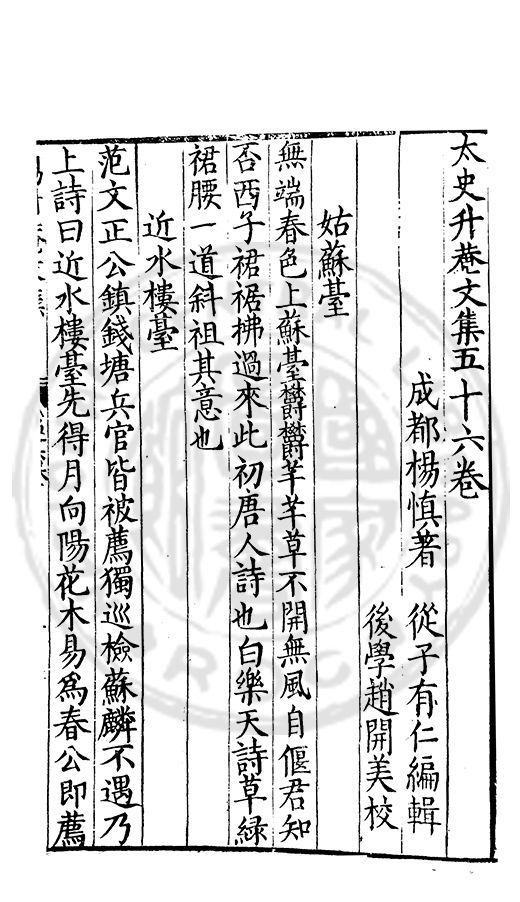 太史升菴文集五十六卷
成都楊慎著　從子有仁編輯
後學趙開美校
姑蘇臺
無端春色上蘇臺欝欝芊芊草不開無風自偃君知
否西子裙裾拂過來此初唐人詩也白樂天詩草緑
裙腰一道斜祖其意也
近水樓臺
范文正公鎮錢塘兵官皆被薦獨巡檢蘇麟不遇乃
上詩曰近水樓臺先得月向陽花木易爲春公即薦